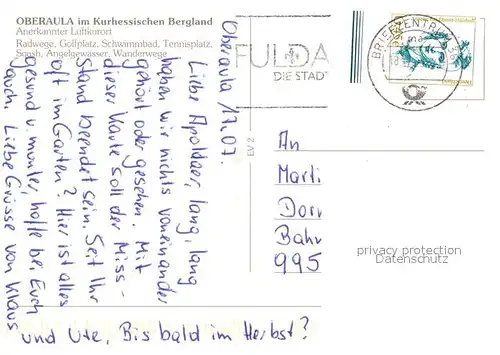 OBERAULA im Kurhessischen Bergland
Anerkannter Luftkurort
Radwege, Golfplatz, Schwimmbad, Tennisplatz,
Squash, Angelgewässer, Wanderwege
FULDA
DIE STADT
BRIEFZENTRUM
EV 2
Oberaula 17.07.
Liebe Apoldaer, lang, lang
haben wir nichts voneinander
gehört oder gesehen. Mit
dieser Karte soll der Miss-
stand beendet sein. Seit Ihr
oft im Garten? Hier ist alles
gesund u. munter, hoffe bei Euch
auch. Liebe Grüsse von Klaus
und Ute, Bis bald im Herbst?
An
Marti
Dorn
Bahn
995
privacy protection
Datenschutz